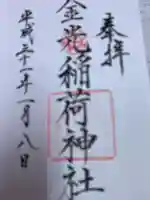 奉拝
金光稲荷神社
平成三十一年一月八日